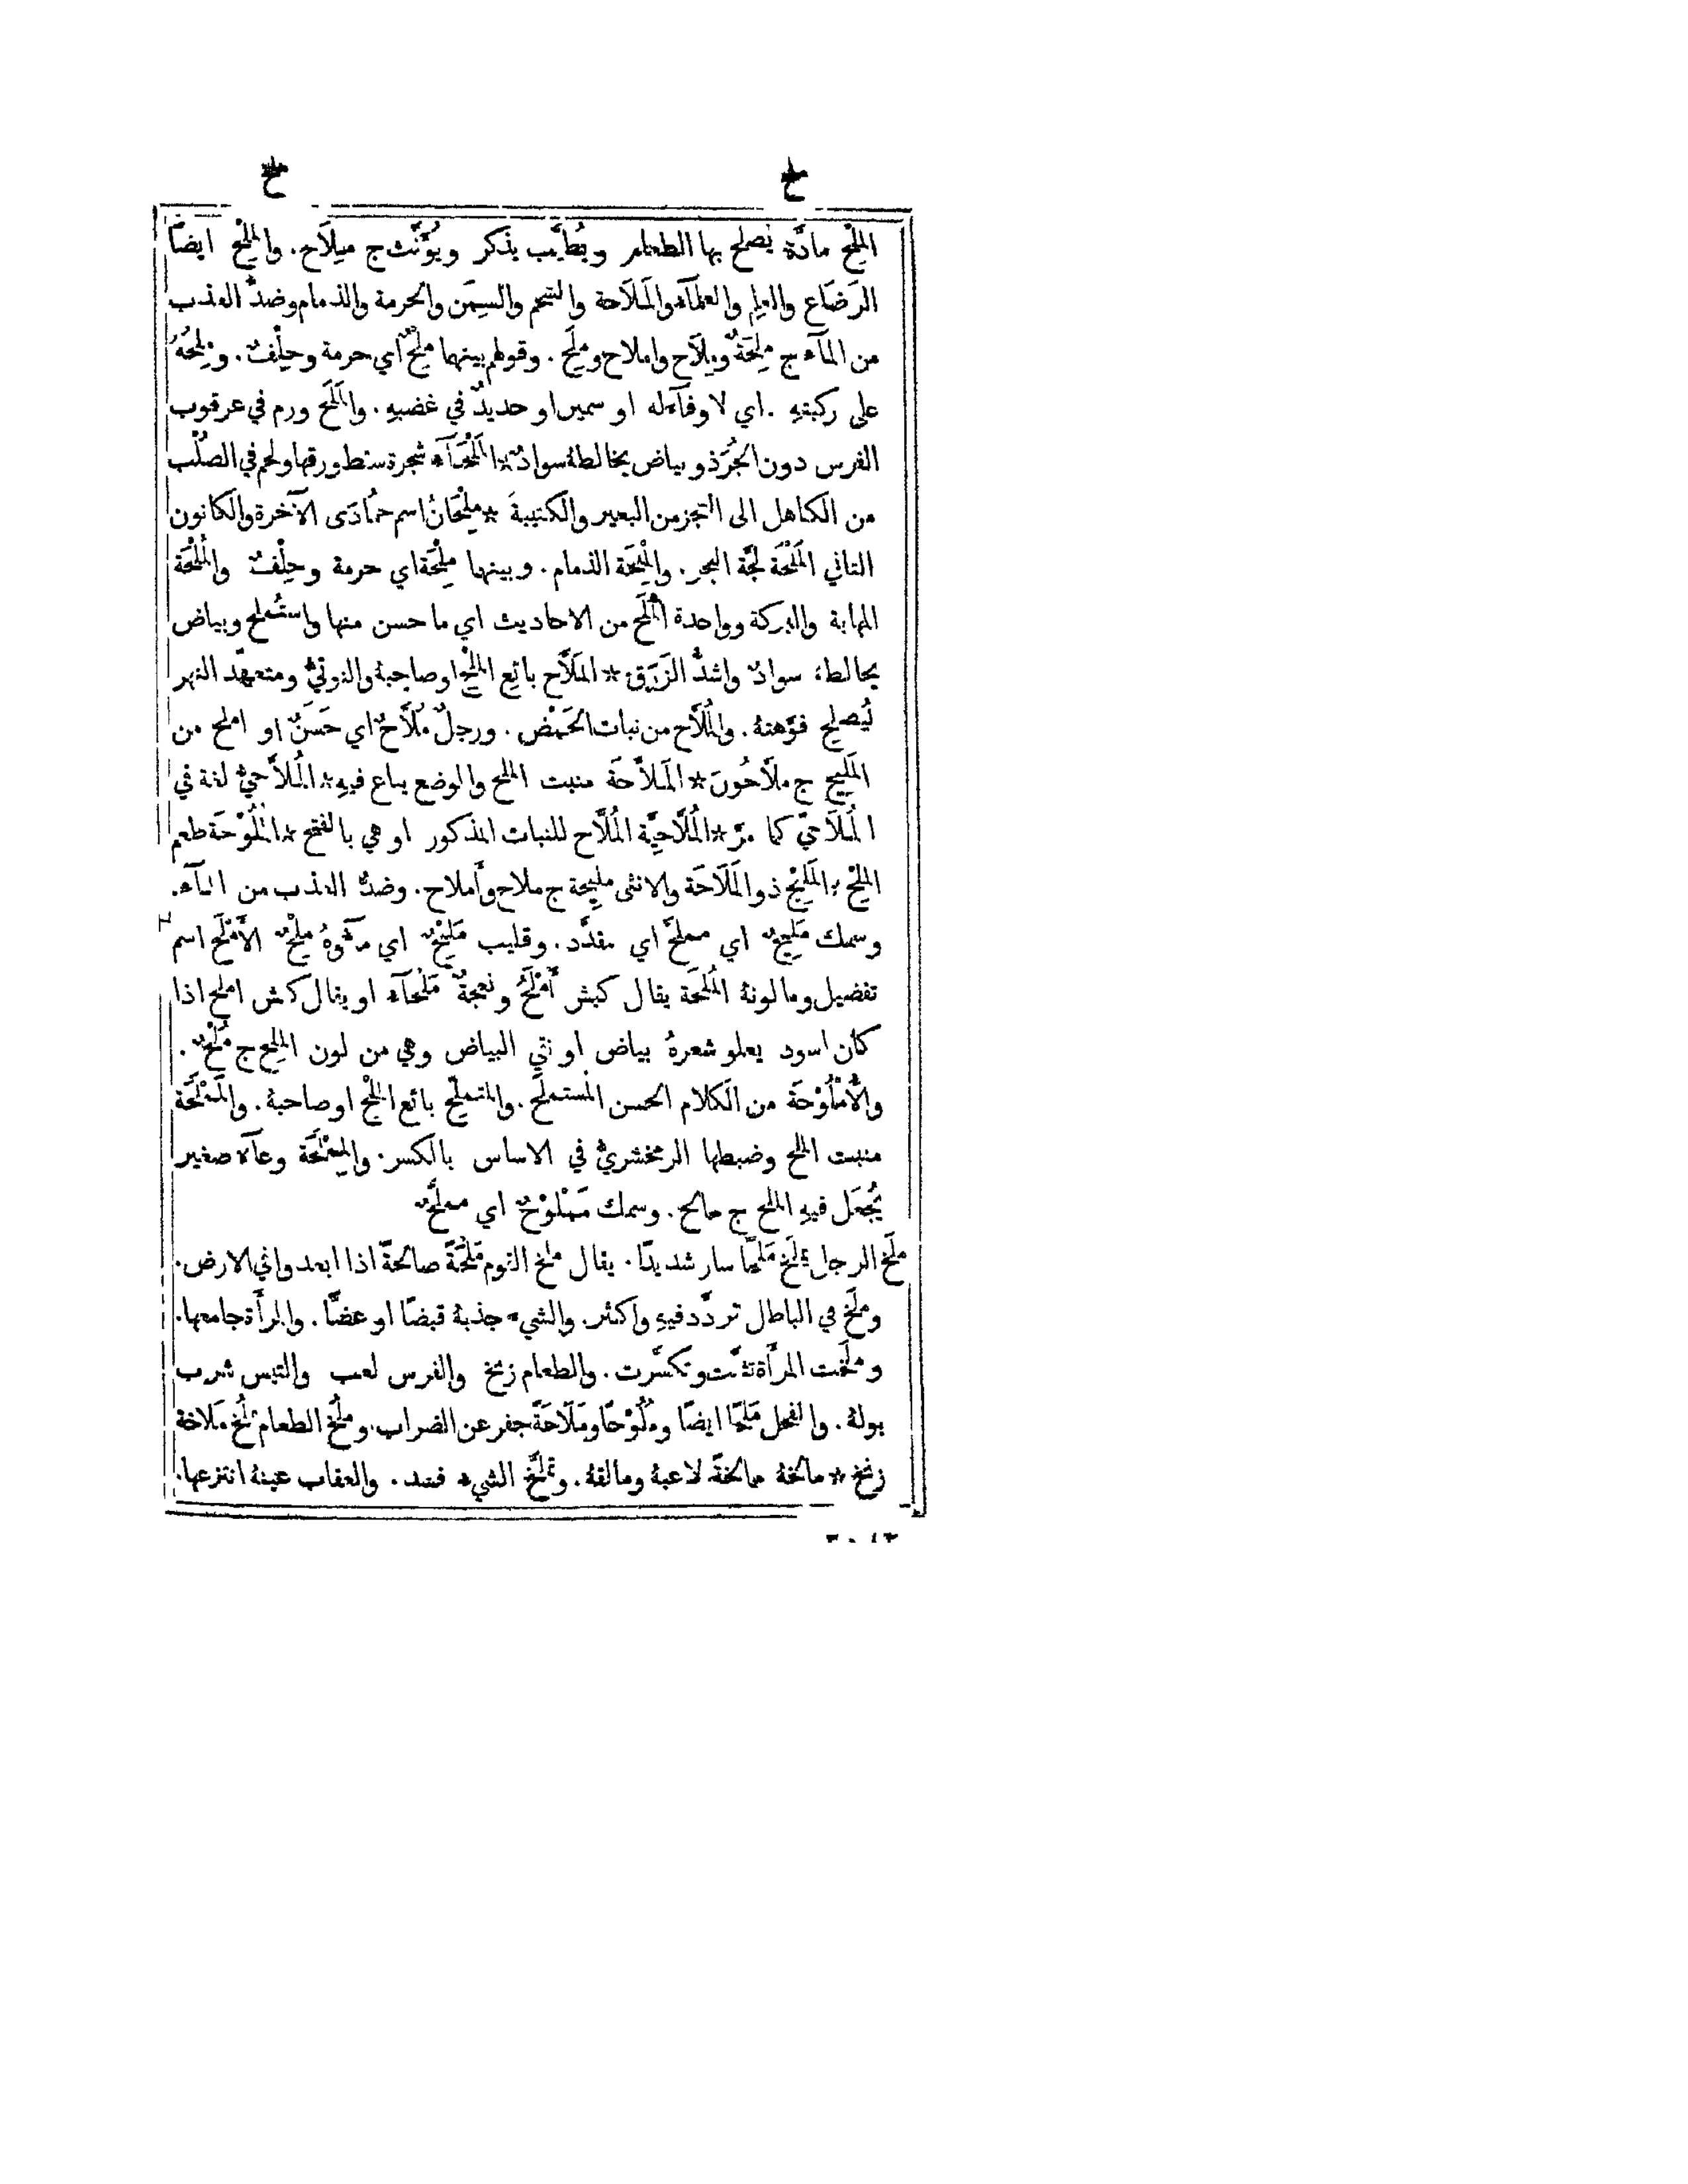 ملح ملخ
المِلْح مادَّة يُصلح بها الطعام ويُطيَّب يذكر ويُؤَنَّث ج مِلَاح. والمِلْح ايضًا
الرَضَاع والعلم والعلمآء والمَلَاحة والشحم والسِمَن والحرمة والذمام وضدُّ العذب
من المآء ج مِلَحَةٌ ومِلَاح واملاح ومِلَح. وقولهم بينهما مِلْحٌ اي حرمة وحِلْفٌ. ومِلحُهُ
على ركبتهِ. اي لا وفآء له او سمين او حديدٌ في غضبهِ. والمَلَح ورم في عرقوب
الفرس دون الجُرَذ وبياض يخالطهُ سوادٌ* المَلْحَآء شجرة سقط ورقها ولحم في الصُلْب
من الكاهل الى العجز من البعير والكتيبة * مِلْحَانُ اسم جُمَادَى الآخرة والكانون
الثاني المَلْحَة لُجَّة البحر. والمِلْحَة الذمام. وبينهما مِلْحَة اي حرمة وحِلْفٌ والمُلْحَة
المهابة والبركة وواحدة المُلَح من الاحاديث اي ما حسن منها واستُملح وبياض
يخالطهُ سوادٌ واشدُّ الزَرَق* المَلَّاح بائِع المِلْح او صاحبهُ والنوتيُّ ومتعهّد النهر
ليُصلِح فوَّهتهُ. والمُلَّاح من نبات الحَمْض. ورجلٌ مُلَّاحٌ اي حَسَنٌ او املح من
المَلِيح ج ملَّاحُونَ* المَلَّاحَة منبت الملح والموضع يباع فيهِ* المُلَّاحيُّ لغة في
المُلَاحيّ كما مرَّ* المُلَّاحِيَّة المُلَّاح للنبات المذكور او هي بالفتح* المُلُوْحَة طعم
المِلْح * المَلِيْح ذو المَلَاحَة والانثى مليحة ج ملاح وأَملاح. وضدُّ العذب من المآء.
وسمك مَلِيحٌ اي مملَّح اي مقدَّد. وقليب مَلِيْحٌ اي مآؤهُ مِلْحٌ الأَمْلَح اسم
تفضيل وما لونهُ المُلحَة يقال كبش أَمْلَحُ ونعجةٌ مَلْحَآء او يقال كبش املح اذا
كان اسود يعلو شعرهُ بياض او نقي البياض وهي من لون الملح ج مُلْحٌ.
والأُمْلُوْحَة من الكلام الحسن المُستملَح. والمتملّح بائع المِلْح او صاحبهُ. والمَمْلَحَة
منبت الملح وضبطها الزمخشريُّ في الاساس بالكسر. والمِمْلَحَة وعآء صغير
يُجعَل فيهِ الملح ج ممالح. وسمك مَمْلُوْحٌ اي مملَّحٌ
ملَخ الرجل يملَخ مَلْخًا سار شديدًا. يقال ملخ القوم مَلْخَةً صالحةً اذا ابعدوا في الارض.
وملَخ في الباطل تردَّد فيهِ واكثر. والشيء جذبهُ قبضًا او عضًّا. والمرأَة جامعها.
وملَخت المرأَة تثنَّت وتكسَّرت. والطعام زنخ والفرس لعب والتيس شرب
بولهُ. والفحل مَلْخًا ايضًا ومُلُوْخًا ومَلَاخَةً جفر عن الضراب. وملُخ الطعام يملُخ مَلَاخة
زنخ * مالخهُ ممالخةً لاعبهُ ومالقهُ. وتملَّخ الشيء فسد. والعقاب عينهُ انتزعها.